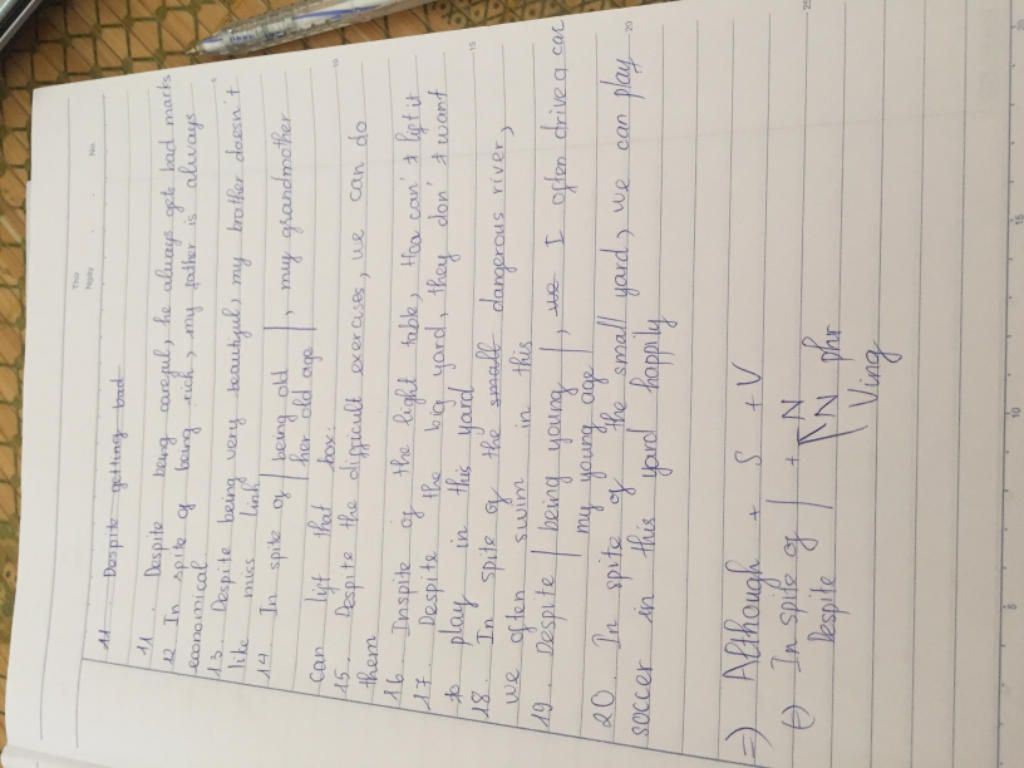 Thứ
Ngày No.
11 Despite getting bad
11. Despite being careful, he always gets bad marks
12. In spite of being rich, my father is always
economical.
13. Despite being very beautiful, my brother doesn't
like miss Linh
14. In spite of being old , my grandmother
her old age
can lift that box.
15. Despite the difficult exercises, we can do
them
16. Inspite of the light table, Hoa can't lift it
17. Despite the big yard, they don't want
to play in this yard
18. In spite of the small dangerous river,
we often swim in this
19. Despite being young , we I often drive a car
my young age
20. In spite of the small yard, we can play
soccer in this yard happily
=) Although + S + V
(-) In spite of + N
Despite N phr
Ving
5
10
15
20
25
5
10
15
20